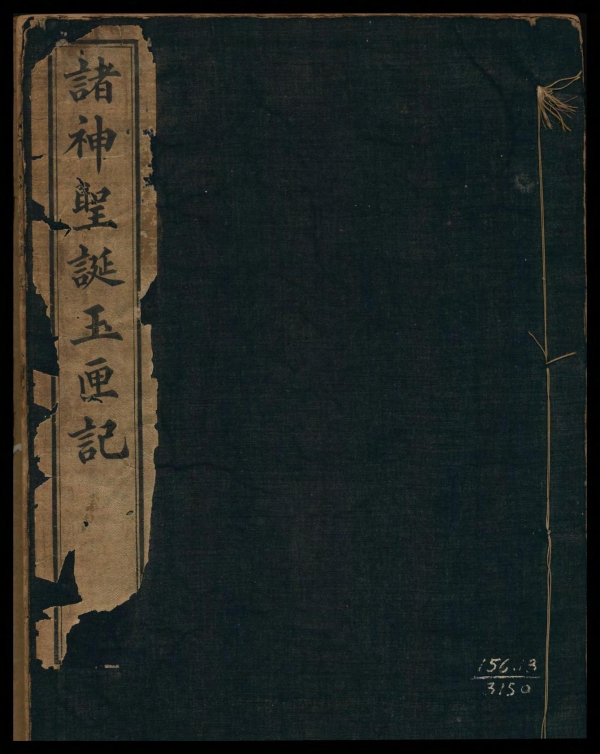 諸神聖誕玉匣記
156.13
3150